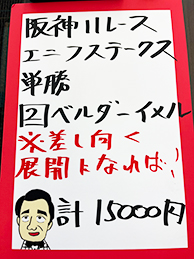 阪神11レース
エニフステークス
単勝
2ベルダーイメル
※差し向く
展開になれば!
計15000円